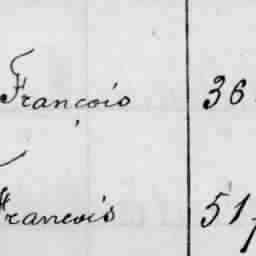 François 36
François 51